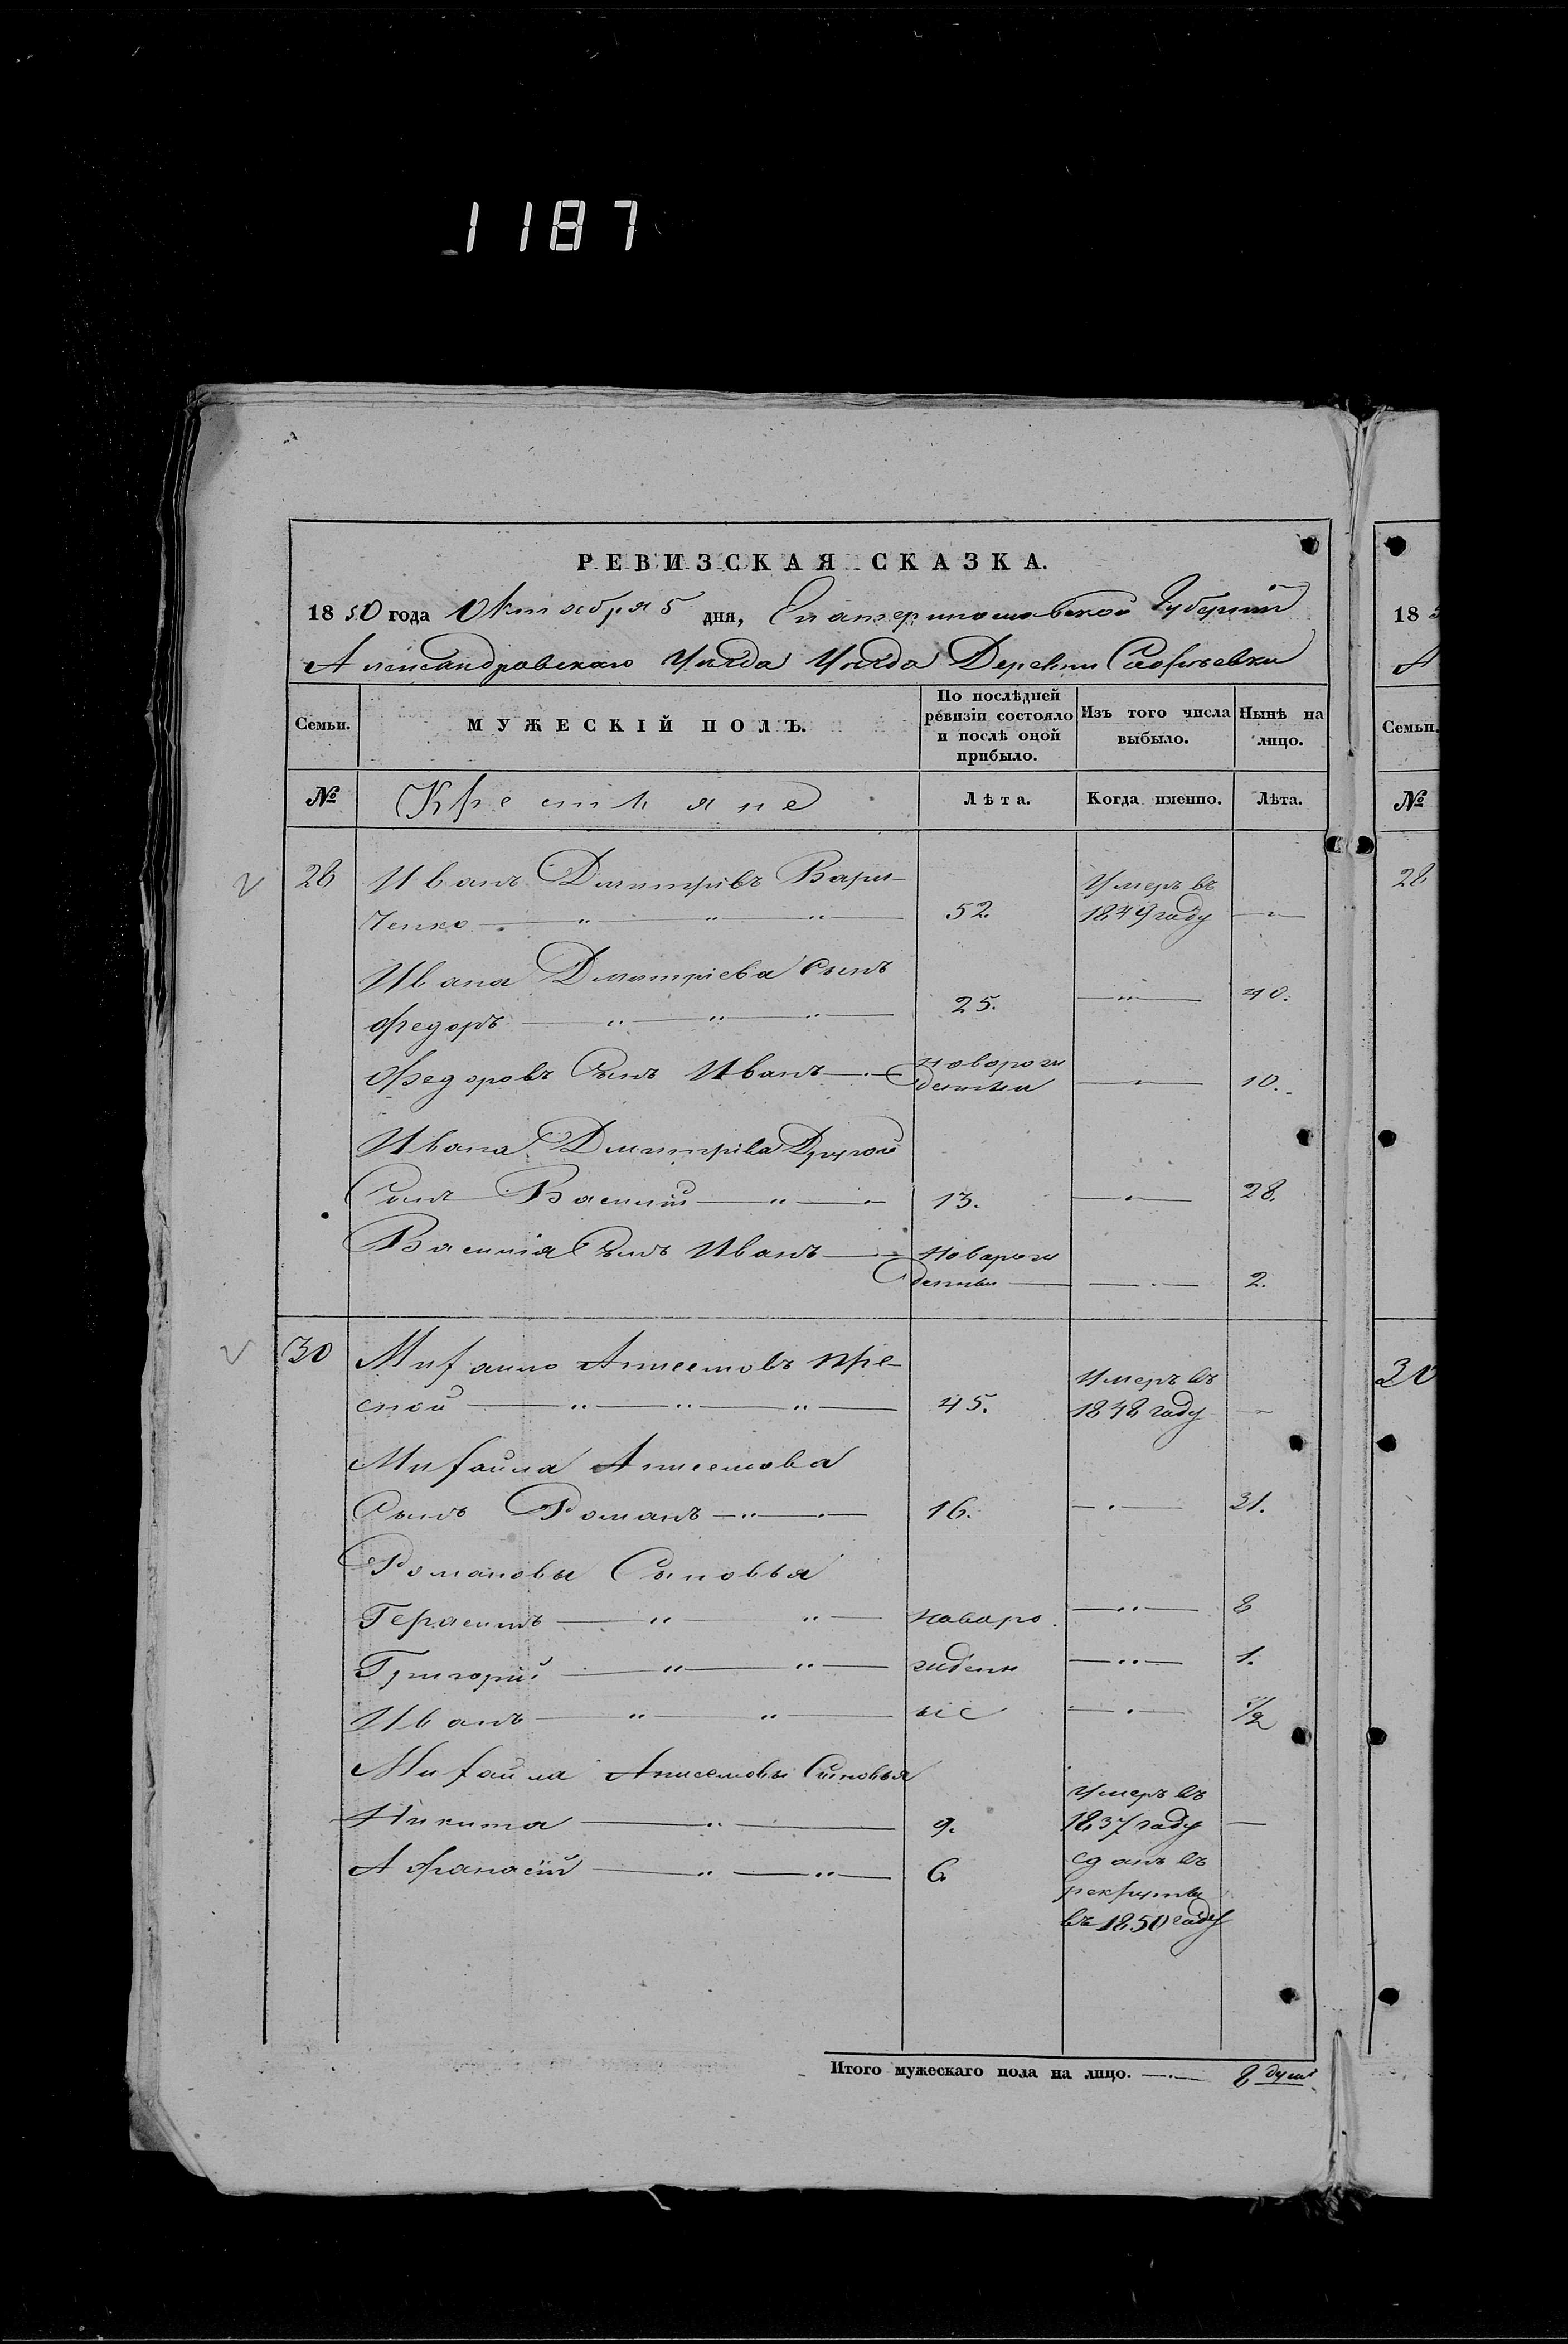 1187
РЕВИЗСКАЯ СКАЗКА.
1850 года Октября 5 дня, Екатеринославской Губернии
Александровскаго Уѣзда Уѣзда Деревни Софіевки
Семьи.
МУЖЕСКІЙ ПОЛЪ.
По послѣдней ревизіи состояло и послѣ оной прибыло.
Изъ того числа выбыло.
Нынѣ на лицо.
№ Крестьяне Лѣта. Когда именно. Лѣта.
28 Иванъ Дмитріевъ Вари-
ченко 52. Умеръ въ 1849 году
Ивана Дмитріева Сынъ
Федоръ 25. 40.
Федоровъ Сынъ Иванъ новорож
денный 10.
Ивана Дмитріева Другой
Сынъ Василій 13. 28.
Василія Сынъ Иванъ новорож
денный 2.
30 Михайло Анисимовъ Прѣ-
сной 45. Умеръ въ 1848 году
Михайла Анисимова
Сынъ Романъ 16. 31.
Романовы Сыновья
Герасимъ новоро 8
Григорій жден 1.
Иванъ ые 1/2
Михайла Анисимовы Сыновья
Никита 9. Умеръ въ 1837 году
Афанасій 6. сданъ въ
рекруты
въ 1850 году
Итого мужескаго пола на лицо. 8 душъ
18
А
Семьи.
№
28
30